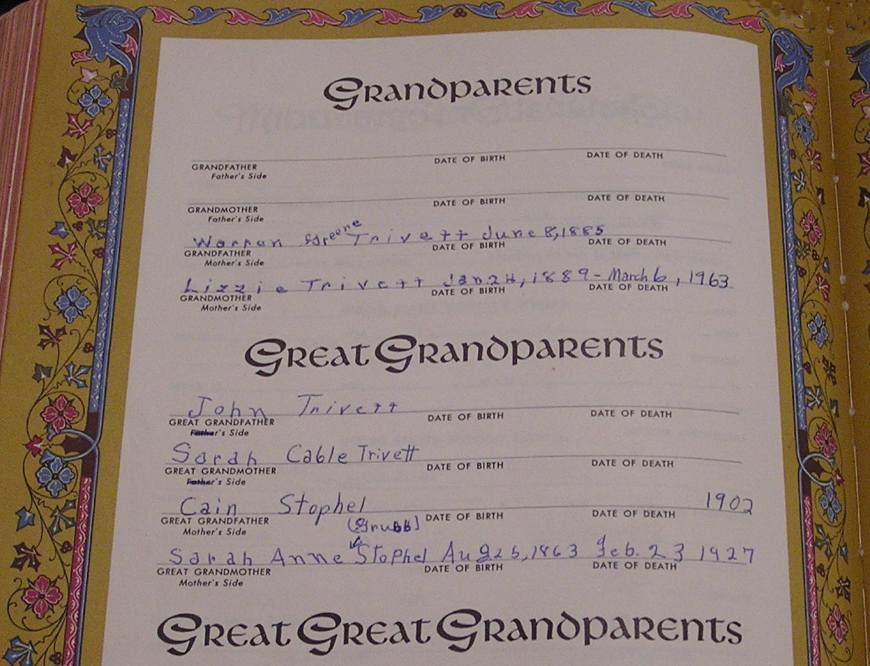 Grandparents
GRANDFATHER DATE OF BIRTH DATE OF DEATH
Father's Side
GRANDMOTHER DATE OF BIRTH DATE OF DEATH
Father's Side
Warren Greene Trivett June 8, 1885
GRANDFATHER DATE OF BIRTH DATE OF DEATH
Mother's Side
Lizzie Trivett Jan 1889 - March 6, 1963
GRANDMOTHER DATE OF BIRTH DATE OF DEATH
Mother's Side
Great Grandparents
John Trivett
GREAT GRANDFATHER DATE OF BIRTH DATE OF DEATH
Father's Side
Sarah Cable Trivett
GREAT GRANDMOTHER DATE OF BIRTH DATE OF DEATH
Father's Side
Cain Stophel 1902
GREAT GRANDFATHER DATE OF BIRTH DATE OF DEATH
Mother's Side
(Grubb)
Sarah Anne Stophel Aug 25, 1863 Feb. 23 1927
GREAT GRANDMOTHER DATE OF BIRTH DATE OF DEATH
Mother's Side
Great Great Grandparents